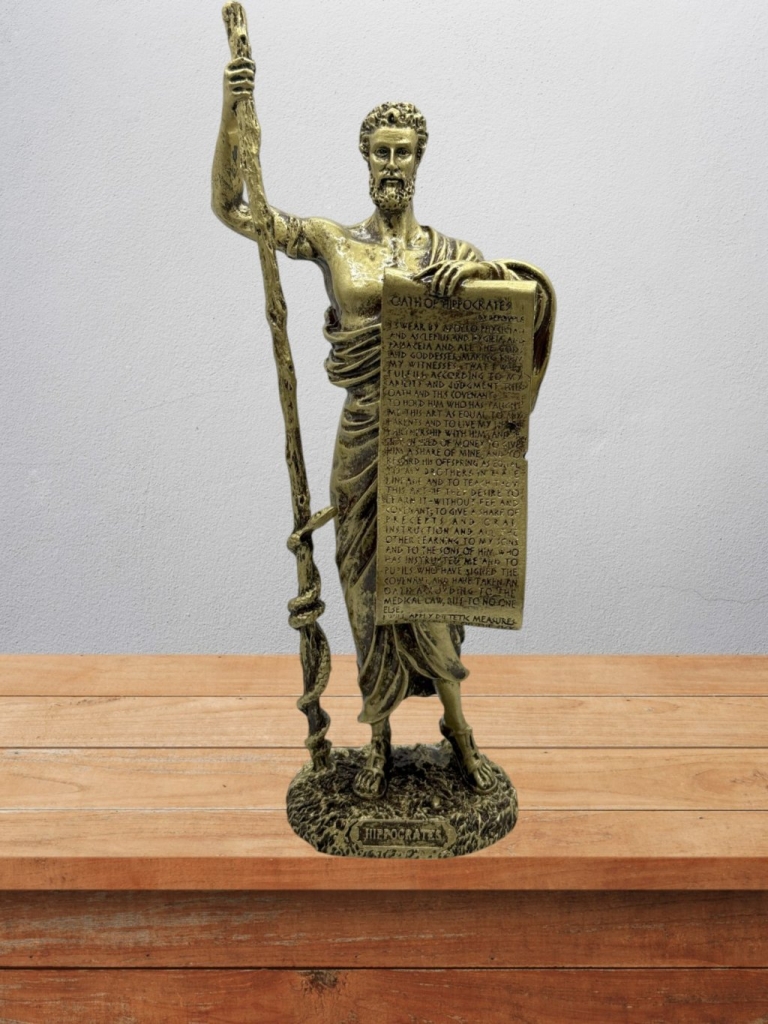 OATH OF HIPPOCRATES
I SWEAR BY APOLLO PHYSICIAN
AND ASCLEPIUS AND HYGIEIA AND
PANACEIA AND ALL THE GODS
AND GODDESSES, MAKING THEM
MY WITNESSES, THAT I WILL
FULFIL ACCORDING TO MY
ABILITY AND JUDGMENT THIS
OATH AND THIS COVENANT:
TO HOLD HIM WHO HAS TAUGHT
ME THIS ART AS EQUAL TO MY
PARENTS AND TO LIVE MY
PARTNERSHIP WITH HIM, AND IF
OF MONEY TO GIVE
HIM A SHARE OF MINE, AND TO
REGARD HIS OFFSPRING AS EQUAL
TO MY BROTHERS IN MALE
LINEAGE AND TO TEACH THEM
THIS ART IF THEY DESIRE TO
LEARN IT WITHOUT FEE AND
COVENANT; TO GIVE A SHARE OF
PRECEPTS AND ORAL
INSTRUCTION AND ALL THE
OTHER LEARNING TO MY SONS
AND TO THE SONS OF HIM WHO
HAS INSTRUCTED ME AND TO
PUPILS WHO HAVE SIGNED THE
COVENANT AND HAVE TAKEN AN
OATH ACCORDING TO THE
MEDICAL LAW, BUT TO NO ONE
ELSE.
APPLY DIETETIC MEASURES
HIPPOCRATES